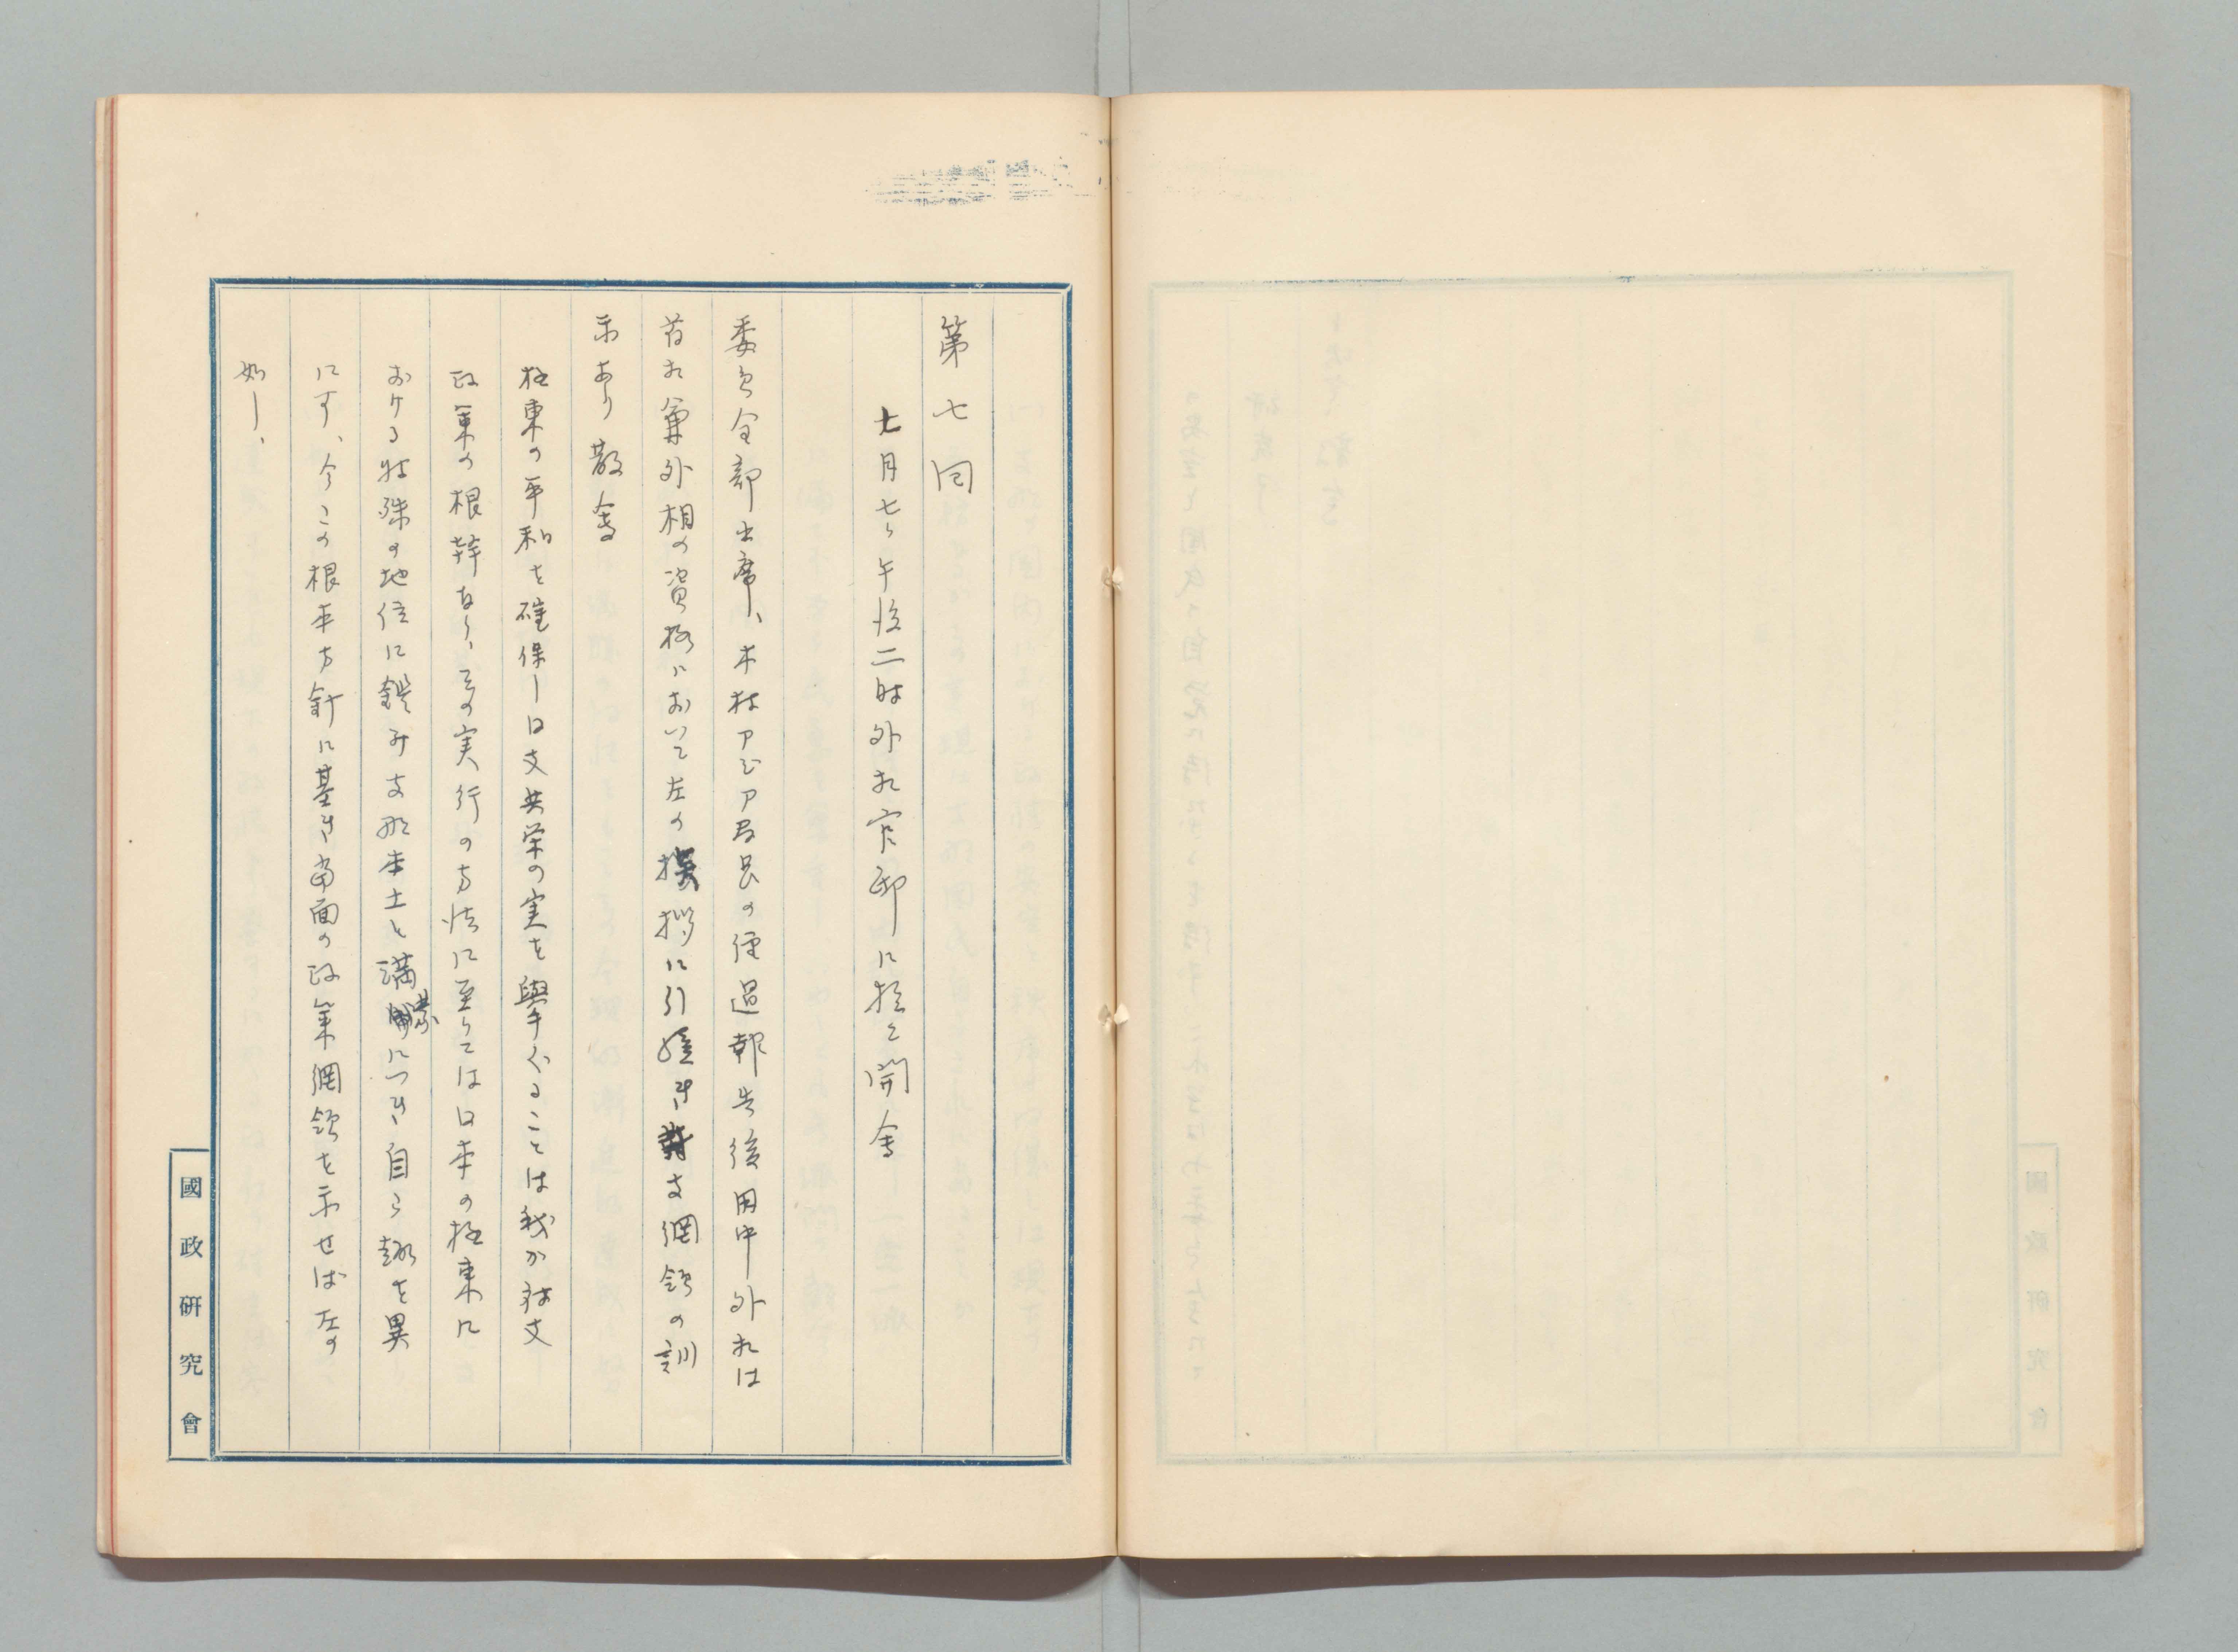 第七回
七月七日午后二時外相官邸に於て開会
委員全部出席、木村アジア局長の経過報告後田中外相は
首相兼外相の資格において左の挨拶に引続き対支綱領の訓
示あり散会
極東の平和を確保し日支共栄の実を擧ぐることは我か対支
政策の根幹なり、その実行の方法に至りては日本の極東に
おける特殊の地位に鑑み支那本土と満蒙につき自ら趣を異
にす、今この根本方針に基き当面の政策綱領を示せば左の
如し、
國政研究會